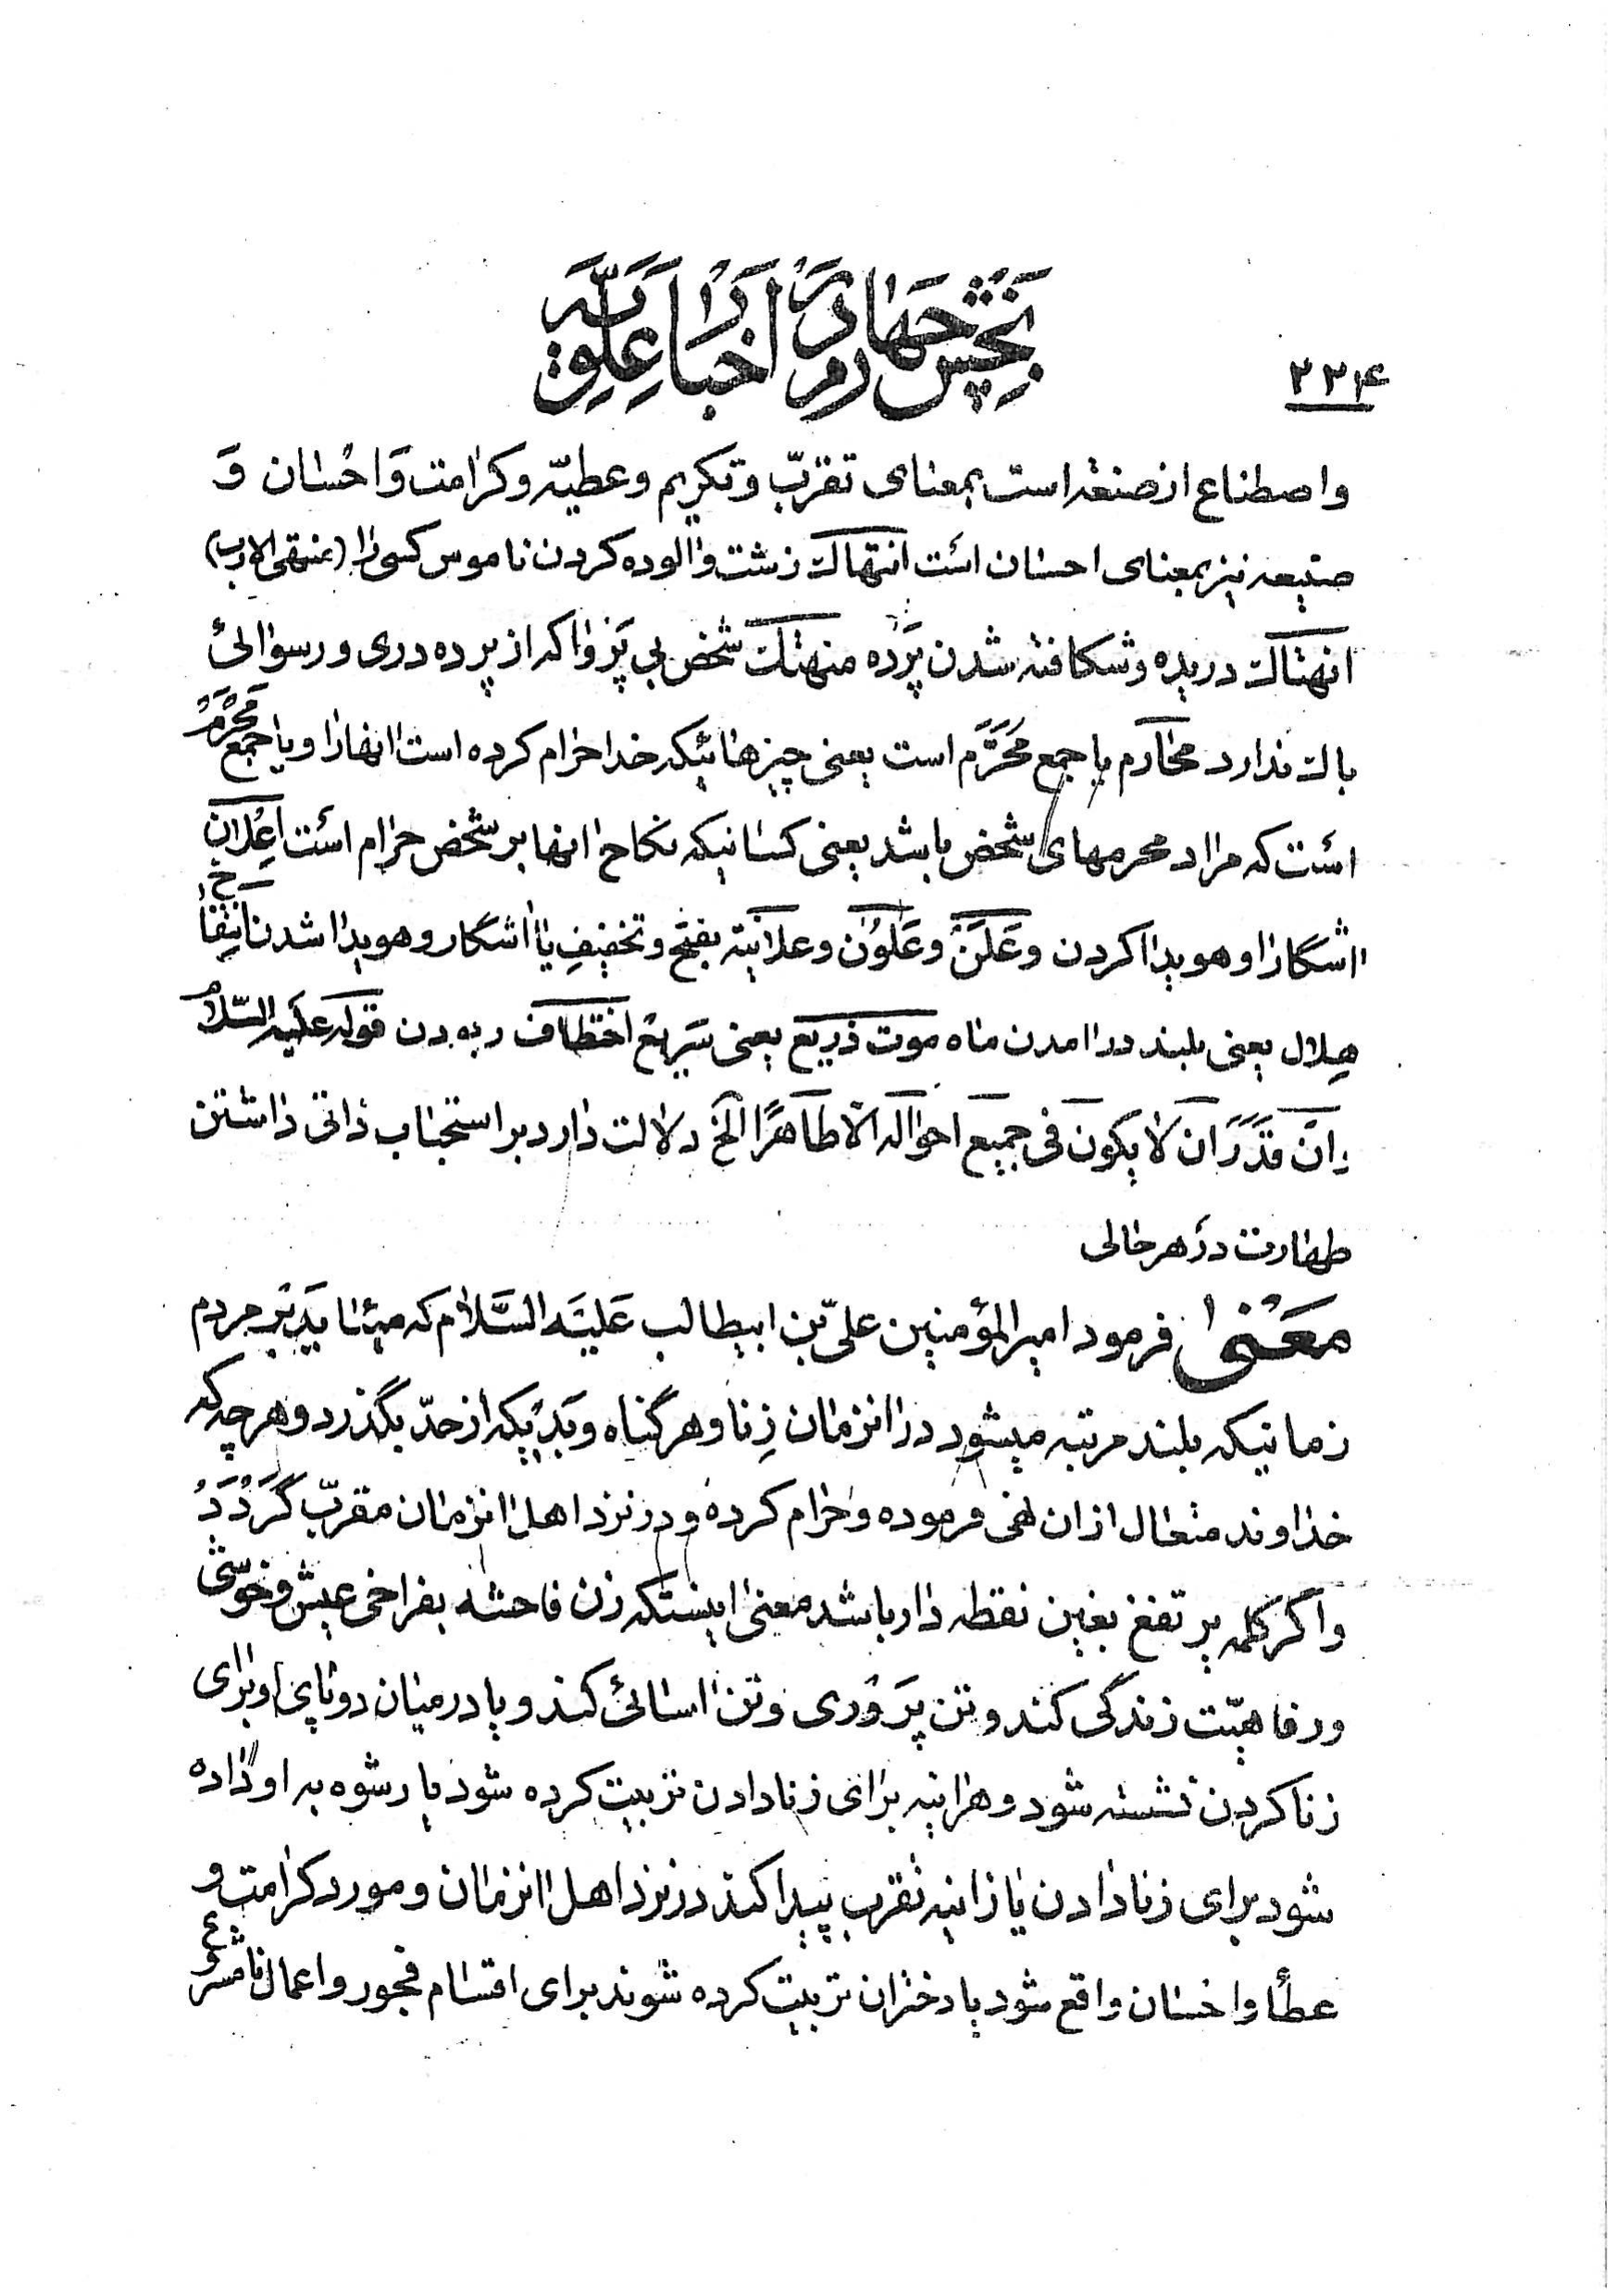 ۲۳۴
بَخْش چَهارُم دَر اَخْبارِ عَلَوِیَّه
واصطناع از صنعه است بمعنای تقرّب و تکریم و عطیّه و کرامت وَ احْسان وَ
صنیعه نیز بمعنای احسان است انتهاک زشت و الوده کردن ناموس کسی را (منتهی الارب)
انهتاک دریده و شکافته شدن پَرده منهتک شخص بی پَروا که از پرده دری و رسوائی
باک ندارد محارم یا جمع مُحَرَّم است یعنی چیزهائیکه خدا حرام کرده است انها را و یا جمع مَحْرَمْ
است که مراد محرمهای شخص باشد یعنی کسانیکه نکاح انها بر شخص حرام است اِعْلان
اشگارا و هویدا کردن و عَلَنَ و عَلوُن و علانیَة بفتح و تخفیفِ یا اشگار و هویدا شدن اِنتِفاخ
هِلال یعنی بلند در امدن ماه موت ذَریع یعنی سَریع اختطاف ربودن قوله علیه السّلام
اِنْ قَدَرَ اَن لا یکون فی جمیع احواله الّا طاهرًا الخ دلالت دارد بر استحباب ذاتی داشتن
طهارت در هر حالی
مَعْنی فرمود امیر المؤمنین علیّ بن ابیطالب عَلَیْهِ السَّلام که میاید بر مردم
زمانیکه بلند مرتبه میشود در انزمان زِنا و هر گناه و بَدییکه از حدّ بگذرد و هر چه که
خداوند متعال از ان نهی فرموده و حرام کرده و در نزد اهل انزمان مقرّب گَرْدَدْ
و اگر کلمه یرتفغ بغین نقطه دار باشد معنی اینستکه زن فاحشه بفراخی عیش و خوشی
و رفاهیّت زندگی کند و تن پَروَری و تن اسائی کند و یا در میان دو پای او برای
زنا کردن نشسته شود و هر اینه برای زنا دادن تربیت کرده شود یا رشوه به او داده
شود برای زنا دادن یا زانیه تقرب پیدا کند در نزد اهل انزمان و مورد کرامت و
عطا و احسان واقع شود یا دختران تربیت کرده شوند برای اقسام فجور و اعمال نامشروع